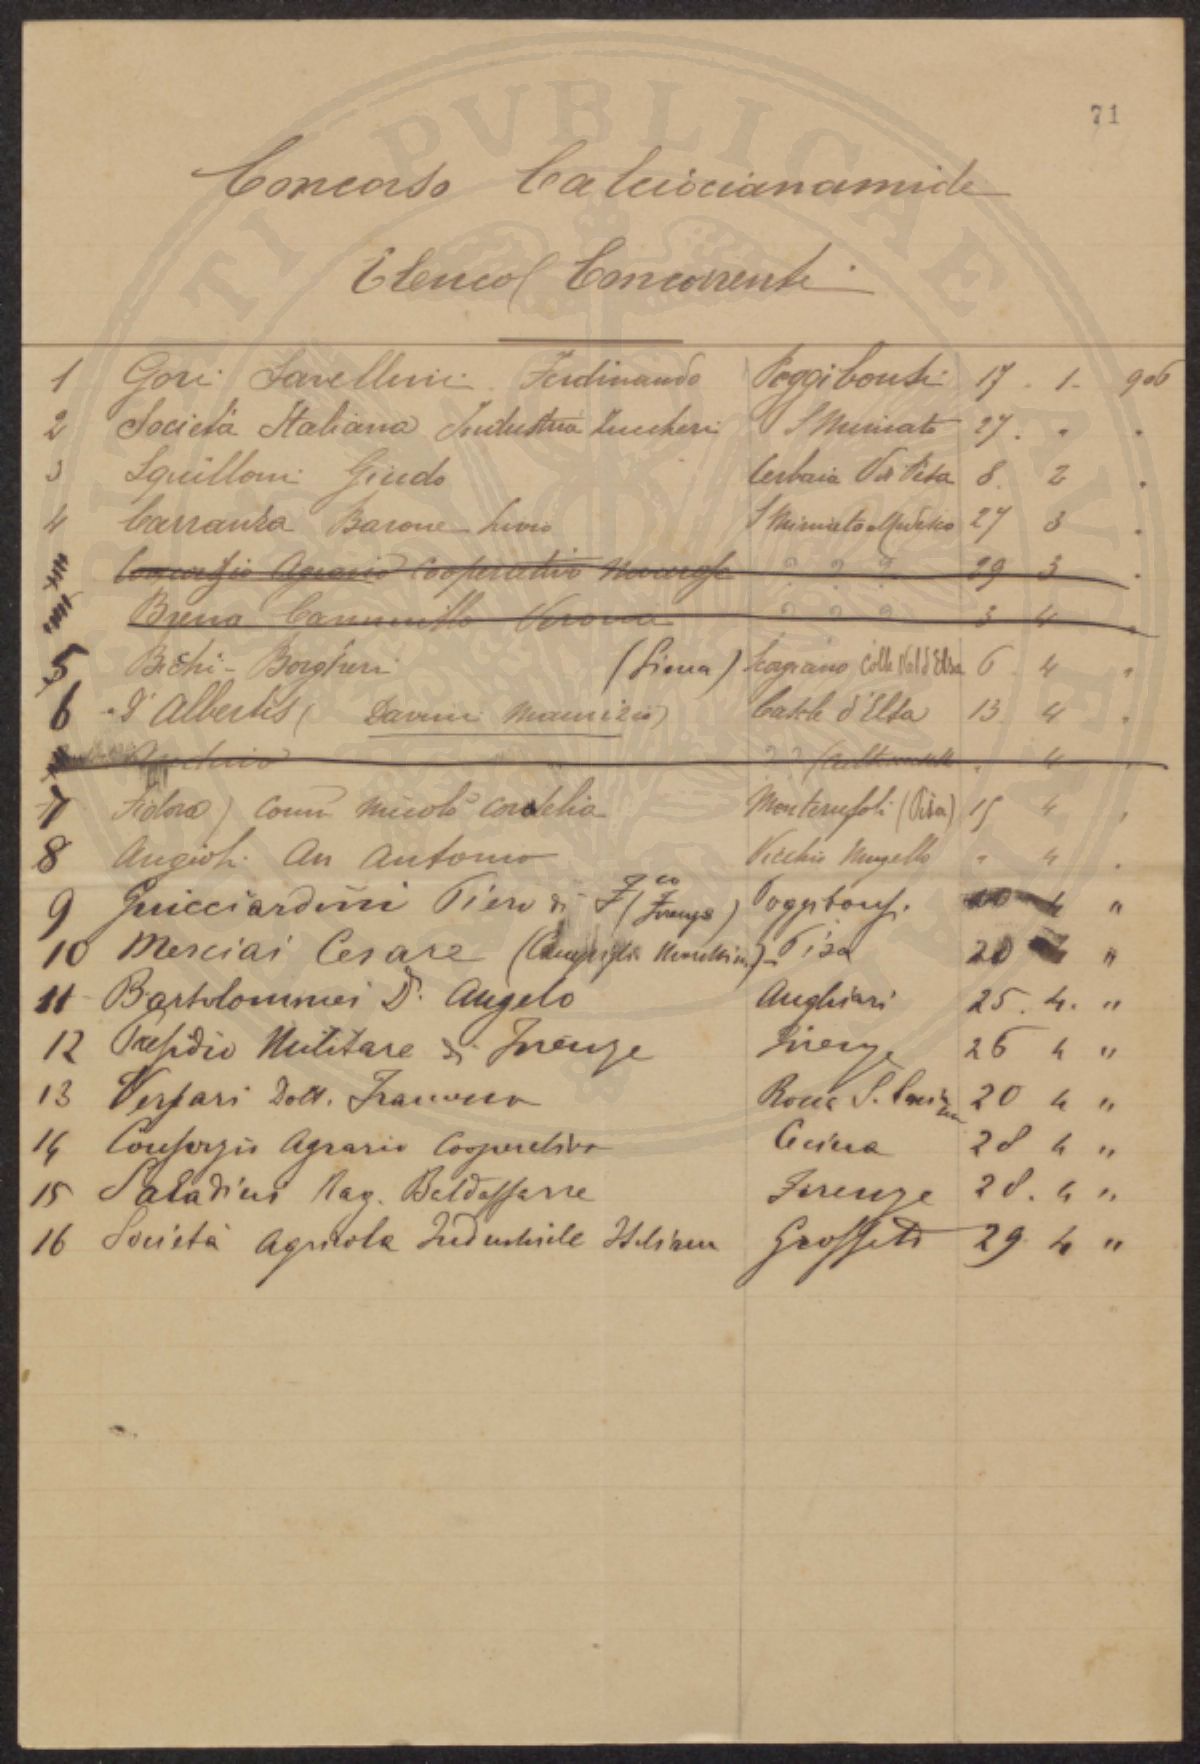 71
Concorso Calciocianamide
Elenco Concorrenti
1 Gori Savellini Ferdinando Poggibonsi 17 . 1 - 906
2 Società Italiana Industria Zuccheri S Miniato 27 . " "
3 Squilloni Guido Cerbaia Val Pesa 8. 2 "
4 Carranza Barone Livio S Miniato al Tedesco 27 3 "
Consorzio Agrario Cooperativo ? ? ? 29 3 "
Brena Verona ? ? ? 3 4 "
5 Bichi - Borgheri (Siena) Scorgiano Colle Val d'Elsa 6 4 "
6 D'Albertis ( Davini Maurizio) Castelo d'Elsa 13 4 "
? ? " 4 "
7 ) Com Nicolò Monterufoli (Pisa) 15 4 "
8 Angioli An Antonio Vicchio Mugello " 4 "
9 Guicciardini Piero di Fco (Firenze) Poggibonsi 20 4 "
10 Merciai Cesare (Campiglia Marittima) - Pisa 20 4 "
11 Bartolommei D. Angelo Anghiari 25 . 4 . "
12 Presidio Militare di Firenze Firenze 26 4 "
13 Versari Dott. Francesco Rocca S. Casciano 20 4 "
14 Consorzio Agrario Cooperativo Cecina 28 4 "
15 Saladini Rag. Baldassarre Firenze 28 . 4 "
16 Società Agricola Industriale Italiana Grosseto 29 4 "